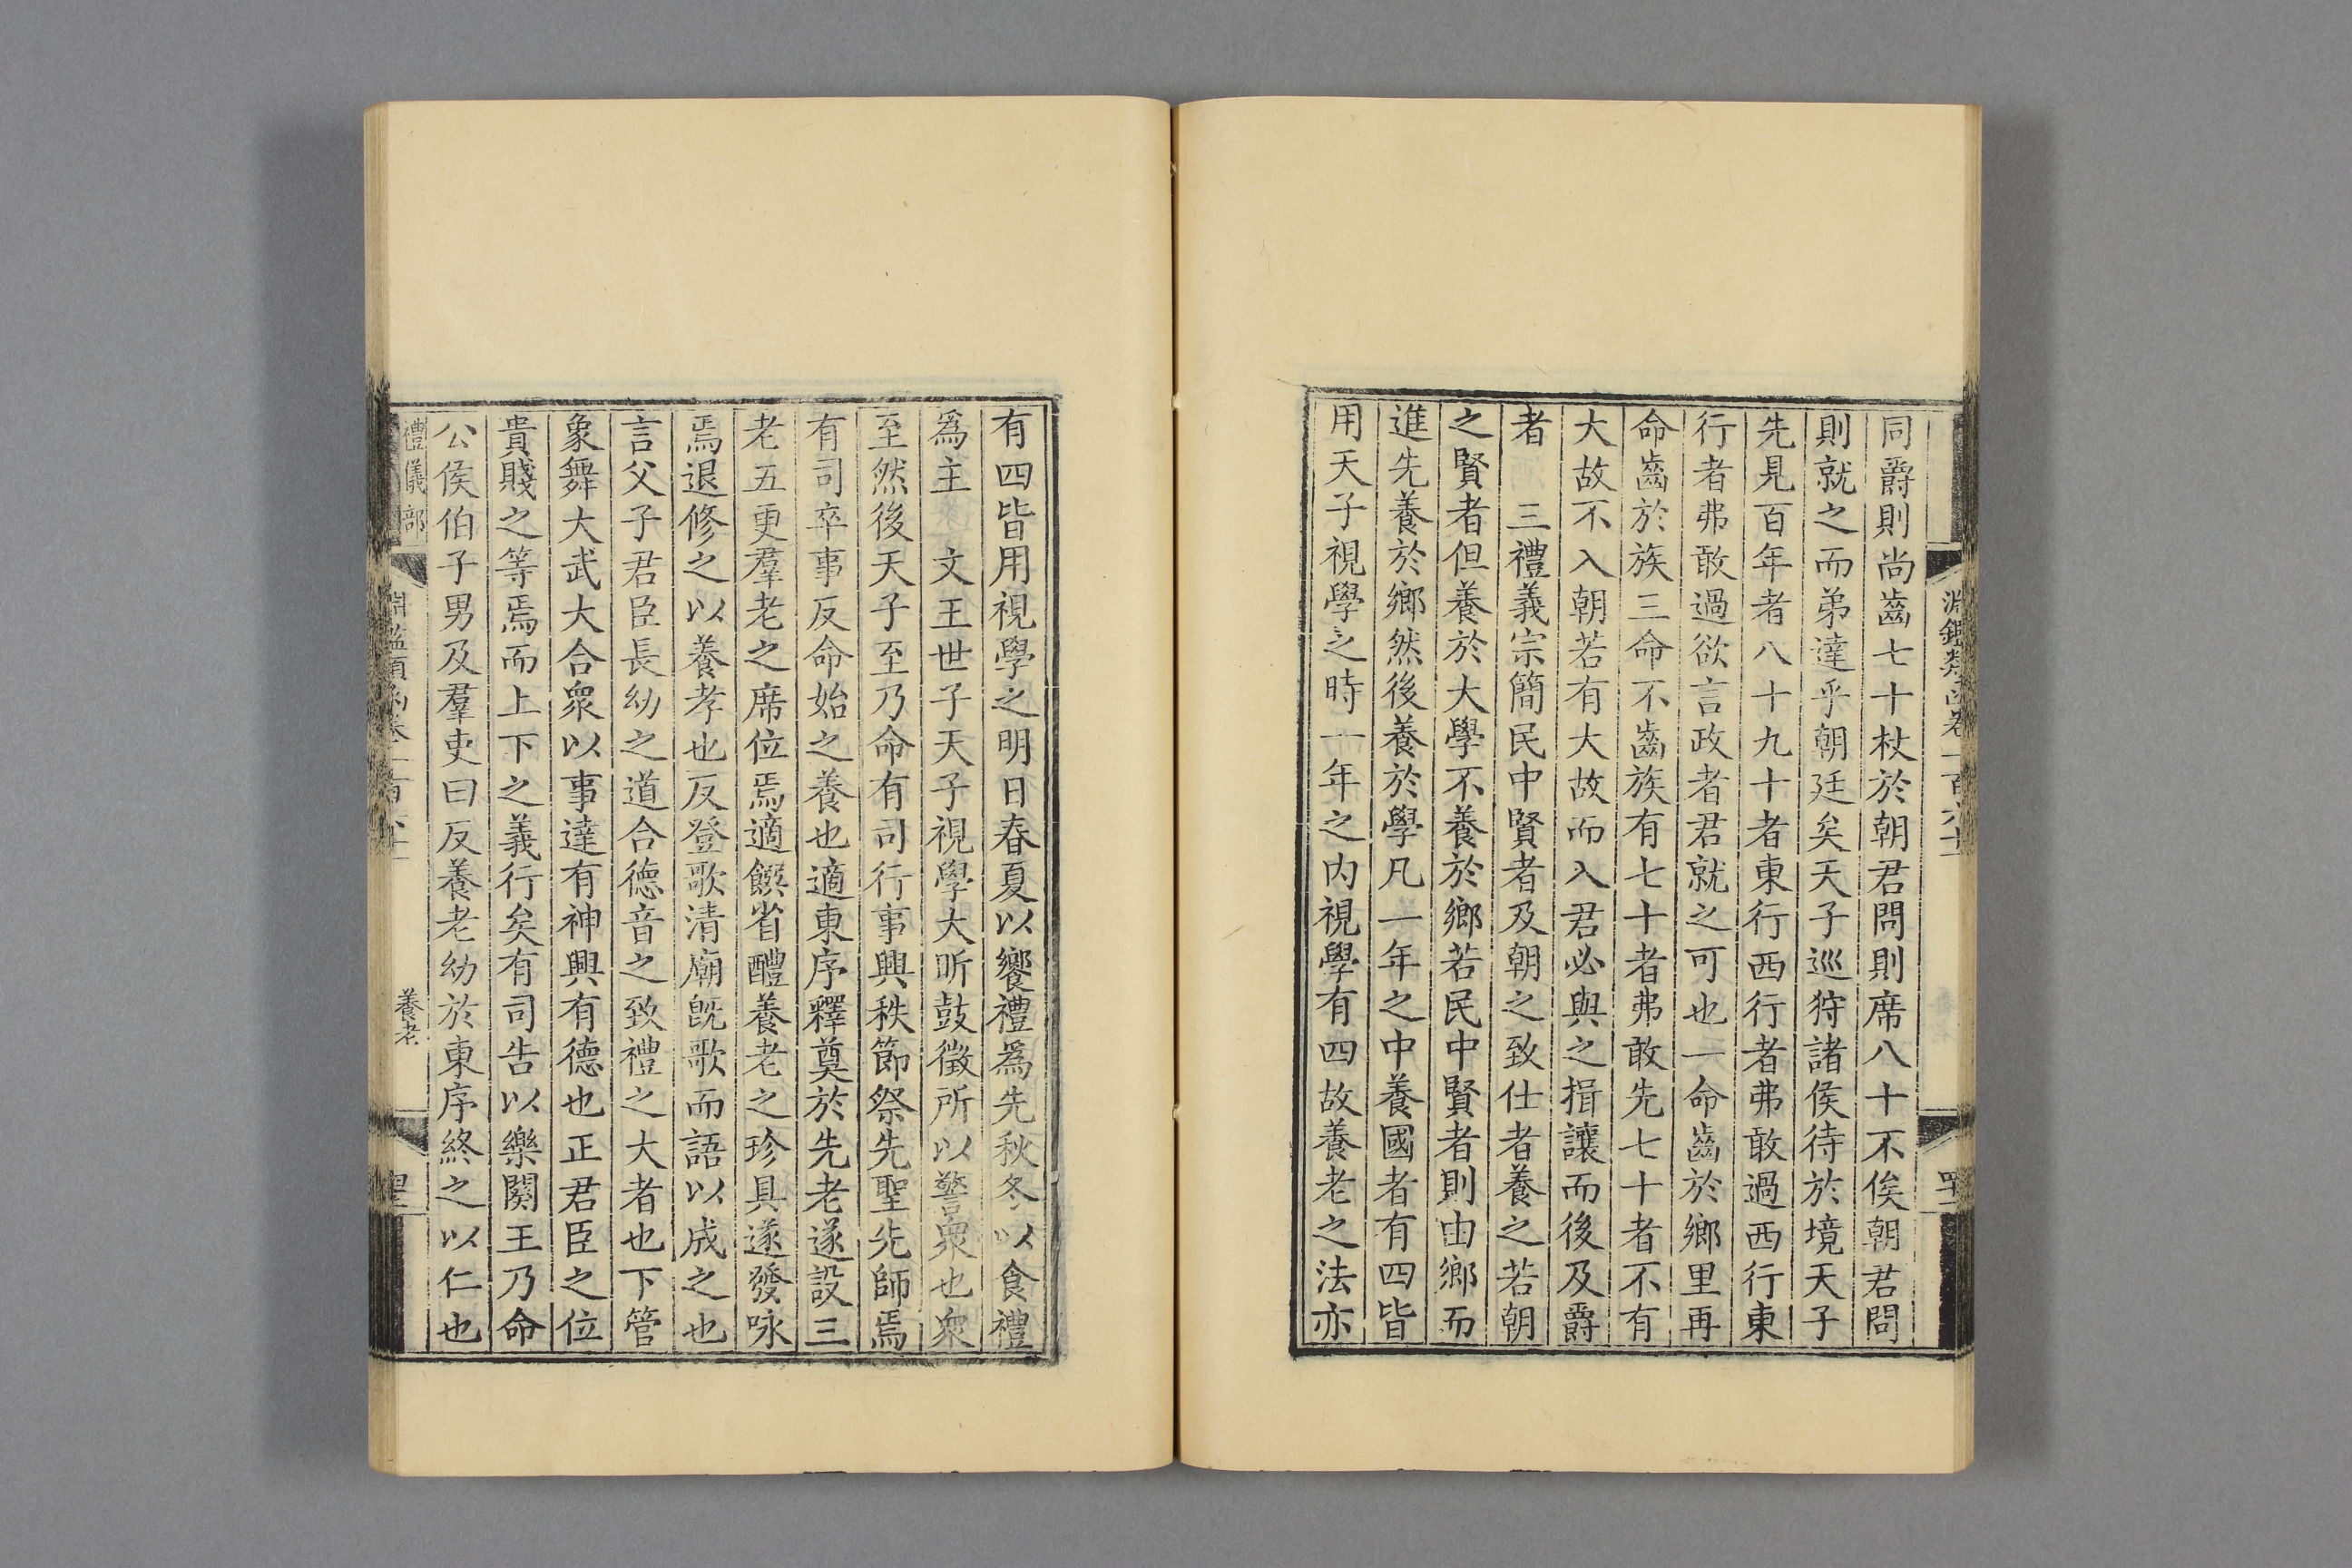 同爵則尚齒七十杖於朝君問則席八十不俟朝君問
則就之而弟達乎朝廷矣天子巡狩諸侯待於境天子
先見百年者八十九十者東行西行者弗敢過西行東
行者弗敢過欲言政者君就之可也一命齒於鄉里再
命齒於族三命不齒族有七十者弗敢先七十者不有
大故不入朝若有大故而入君必與之揖讓而後及爵
者　三禮義宗簡民中賢者及朝之致仕者養之若朝
之賢者但養於大學不養於鄉若民中賢者則由鄉而
進先養於鄉然後養於學凡一年之中養國者有四皆
用天子視學之時一年之內視學有四故養老之法亦
有四皆用視學之明日春夏以饗禮爲先秋冬以食禮
爲主　文王世子天子視學大昕鼓徵所以警衆也衆
至然後天子至乃命有司行事興秩節祭先聖先師焉
有司卒事反命始之養也適東序釋奠於先老遂設三
老五更羣老之席位焉適饌省醴養老之珍具遂發咏
焉退修之以養孝也反登歌清廟旣歌而語以成之也
言父子君臣長幼之道合德音之致禮之大者也下管
象舞大武大合衆以事達有神興有德也正君臣之位
貴賤之等焉而上下之義行矣有司告以樂闋王乃命
公侯伯子男及羣吏曰反養老幼於東序終之以仁也
禮儀部
養老